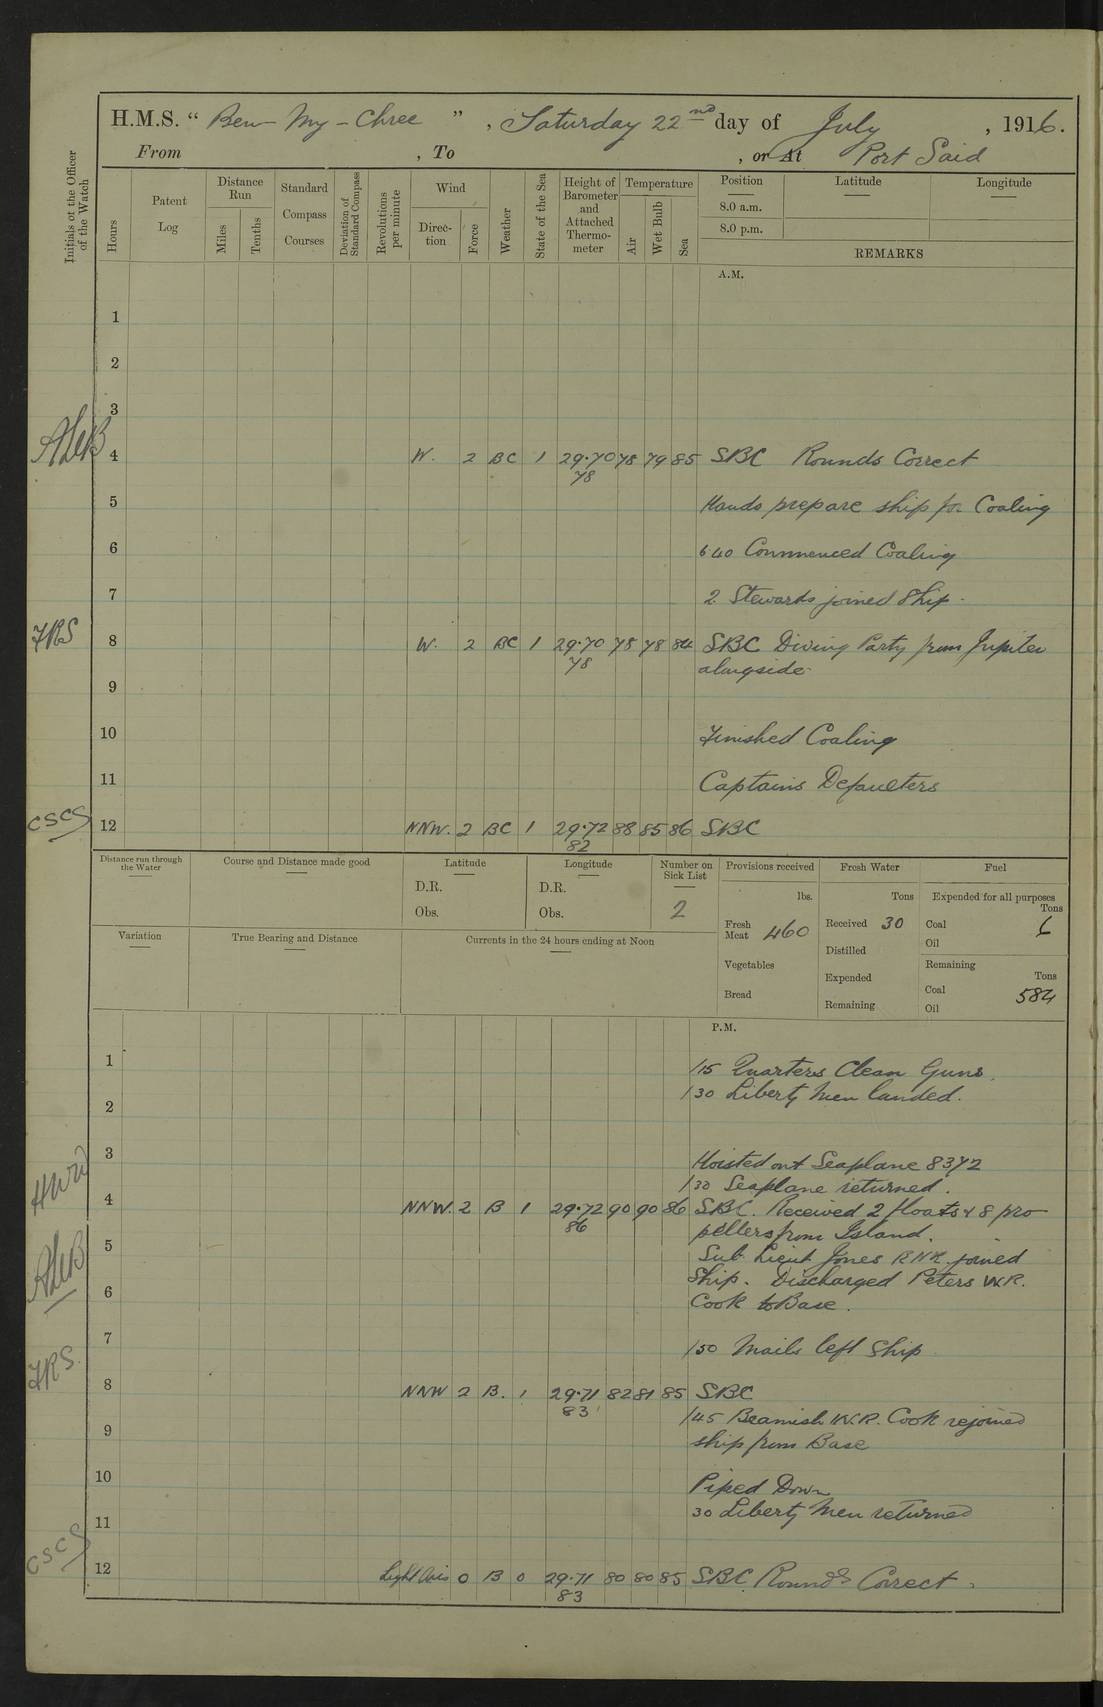 H.M.S. “ Ben-My-Chree ” , Saturday 22nd day of July , 1916.
From , To , or At Port Said
Initials of the Officer of the Watch
Hours
Patent Log
Distance Run
Miles
Tenths
Standard Compass Courses
Deviation of Standard Compass
Revolutions per minute
Wind
Direction
Force
Weather
State of the Sea
Height of Barometer and Attached Thermometer
Temperature
Air
Wet Bulb
Sea
Position
Latitude
Longitude
8.0 a.m.
8.0 p.m.
REMARKS
A.M.
1
2
3
ALeB 4 W. 2 BC 1 29.70 78 79 85 SBC Rounds Correct
78
5 Hands prepare ship for Coaling
6 6.40 Commenced Coaling
7 2 Stewards joined Ship.
FRS 8 W. 2 BC 1 29.70 78 78 84 SBC Diving Party from Jupiter
78 alongside.
9
10 Finished Coaling
11 Captains Defaulters
CSCS 12 NNW. 2 BC 1 29.72 88 85 86 SBC
82
Distance run through the Water
Course and Distance made good
Latitude
D.R.
Obs.
Longitude
D.R.
Obs.
Number on Sick List
2
Provisions received
lbs.
Fresh Meat 460
Vegetables
Bread
Fresh Water
Tons
Received 30
Distilled
Expended
Remaining
Fuel
Expended for all purposes
Tons
Coal 6
Oil
Remaining
Tons
Coal 584
Oil
Variation
True Bearing and Distance
Currents in the 24 hours ending at Noon
P.M.
1 /15 Quarters Clean Guns.
/30 Liberty Men landed.
2
3 Hoisted out Seaplane 8372
/30 Seaplane returned.
HWW 4 NNW. 2 B 1 29.72 90 90 86 SBC. Received 2 floats & 8 pro
86 pellers from Island.
5 Sub Lieut Jones RNR. joined
ALeB Ship. Discharged Peters W.R.
6 Cook to Base.
7 /50 Mails left Ship
FRS. 8 NNW 2 B. 1 29.71 82 81 85 SBC
83 /45 Beamish W.R. Cook rejoined
9 ship from Base
10 Piped Down
30 Liberty Men returned
11
CSCS 12 Light Airs 0 B 0 29.71 80 80 85 SBC Rounds Correct.
83